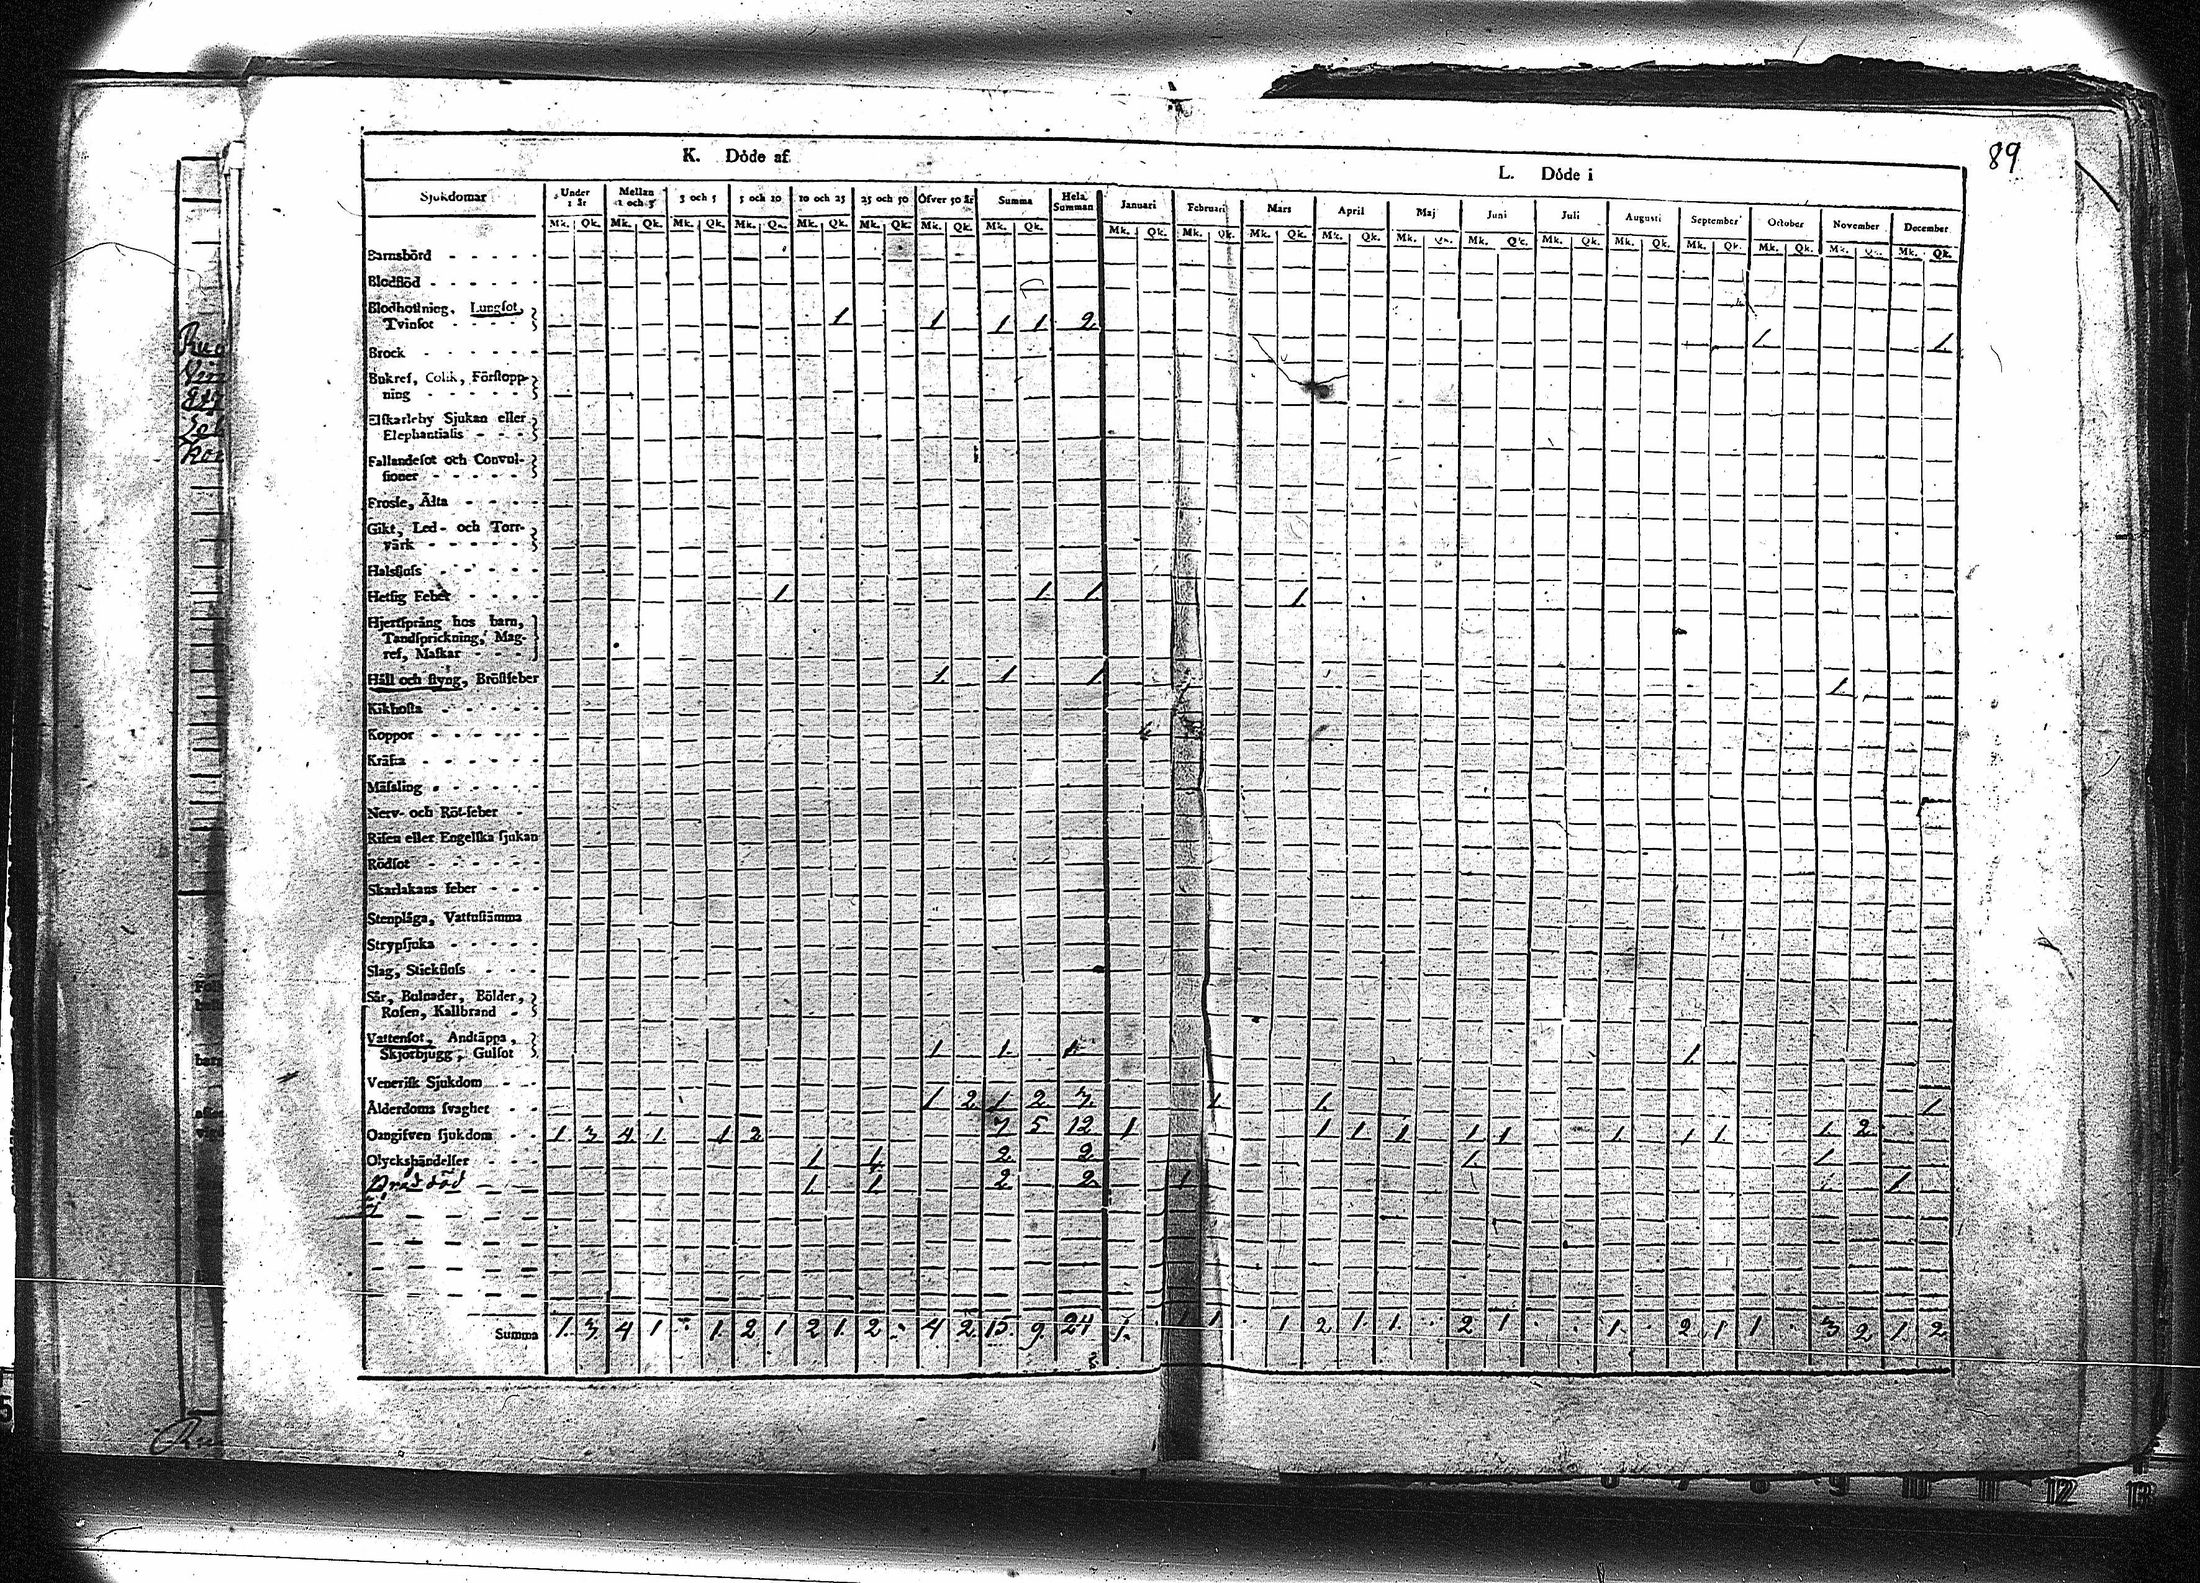 89
K. Döde af
L. Döde i
Sjukdomar Under 1 år Mellan 1 och 3 3 och 5 5 och 10 10 och 25 25 och 50 Öfver 50 år Summa Hela Summan Januari Februari Mars April Maj Juni Juli Augusti September October November December
Mk. Qk. Mk. Qk. Mk. Qk. Mk. Qk. Mk. Qk. Mk. Qk. Mk. Qk. Mk. Qk. Mk. Qk. Mk. Qk. Mk. Qk. Mk. Qk. Mk. Qk. Mk. Qk. Mk. Qk. Mk. Qk. Mk. Qk. Mk. Qk. Mk. Qk. Mk. Qk.
Barnsbörd
Blodflöd
Blodhoſtning, Lungſot,
Tvinſot 1 1 1 1 2 1 1
Brock
Bukref, Colik, Förſtopp-
ning
Elfkarleby Sjukan eller
Elephantiaſis
Fallandeſot och Convul-
ſioner
Froſſe, Älta
Gikt, Led- och Torr-
värk
Halsfluſs
Hetſig Feber 1 1 1 1
Hjertſprång hos barn,
Tandſprickning, Mag-
ref, Maſkar
Håll och ſtyng, Bröſtfeber 1 1 1 1
Kikhoſta
Koppor
Kräfta
Mäſsling
Nerv- och Röt-feber
Riſen eller Engelſka ſjukan
Rödſot
Skarlakans feber
Stenplåga, Vattuſtämma
Strypſjuka
Slag, Stickfluſs
Sår, Bulnader, Bölder,
Roſen, Kallbrand
Vattenſot, Andtäppa,
Skjörbjugg, Gulſot 1 1 1 1
Veneriſk Sjukdom
Ålderdoms ſvaghet 1 2 1 2 3 1 1 1
Oangifven ſjukdom 1 3 4 1 1 2 7 5 12 1 1 1 1 1 1 1 1 1 1 2
Olyckshändelſer 1 1 2 2 1 1
Bråd död 1 1 2 2 1 1
Summa 1 3 4 1 1 2 1 2 1 2 4 2 15 9 24 1 1 1 1 2 1 1 2 1 1 2 1 1 3 2 1 2